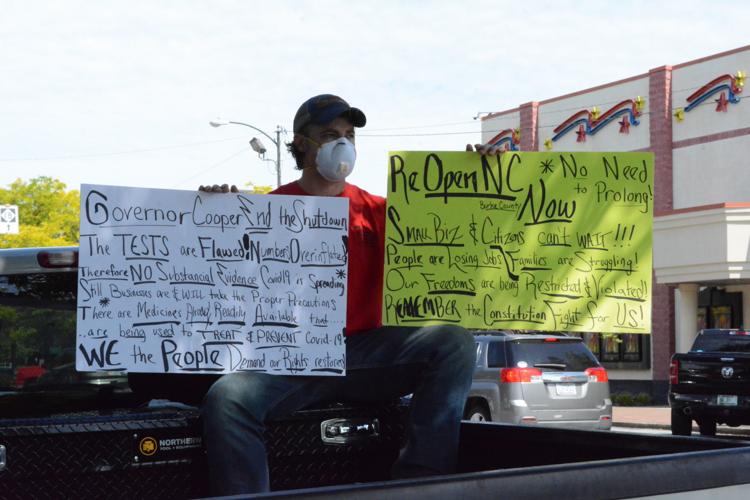 Governor Cooper End the Shutdown
The TESTS are Flawed! Numbers Overinflated!
Therefore NO Substancial Evidence Covid19 is Spreading*
Still Businesses are & WILL take the Proper Precautions
*There are Medicines Already Readily Available that....
..are being used to TREAT & PREVENT Covid-19!
WE the People Demand our Rights restored!
ReOpen NC
Burke County
Now
*No Need
to Prolong!
Small Biz & Citizens can't WAIT!!!
People are Losing Jobs & Families are Struggling!
Our Freedoms are being Restricted & Violated!
REMEMBER the Constitution Fight for US!
NORTHERN